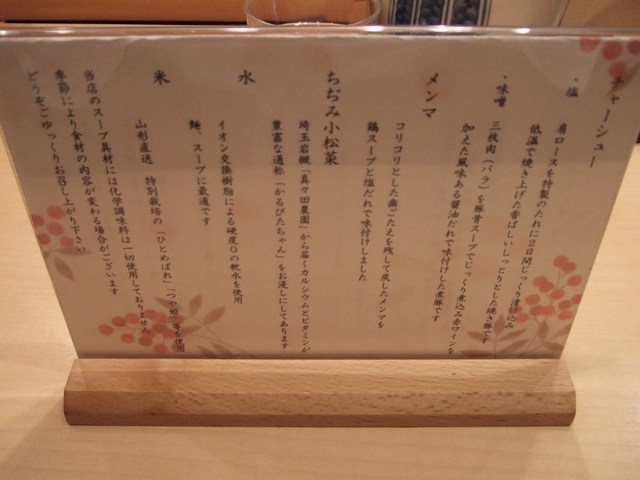 チャーシュー
・塩
肩ロースを特製のたれに2日間じっくり漬け込み
低温で焼き上げた香ばしいしっとりとした焼き豚です
・味噌
三枚肉(バラ)を豚骨スープでじっくり煮込み赤ワインを
加えた風味ある醤油だれで味付けした煮豚です
メンマ
コリコリとした歯ごたえを残して戻したメンマを
鶏スープと塩だれで味付けしました
ちぢみ小松菜
埼玉岩槻「真々田農園」から届くカルシウムとビタミンが
豊富な通称「かるびたちゃん」をお浸しにしてあります
水
イオン交換樹脂による硬度0の軟水を使用
麺、スープに最適です
米
山形直送 特別栽培の「ひとめぼれ」「つや姫」等を使用
当店のスープ具材には化学調味料は一切使用しておりません
季節により食材の内容が変わる場合がございます
どうぞごゆっくりお召し上がり下さい